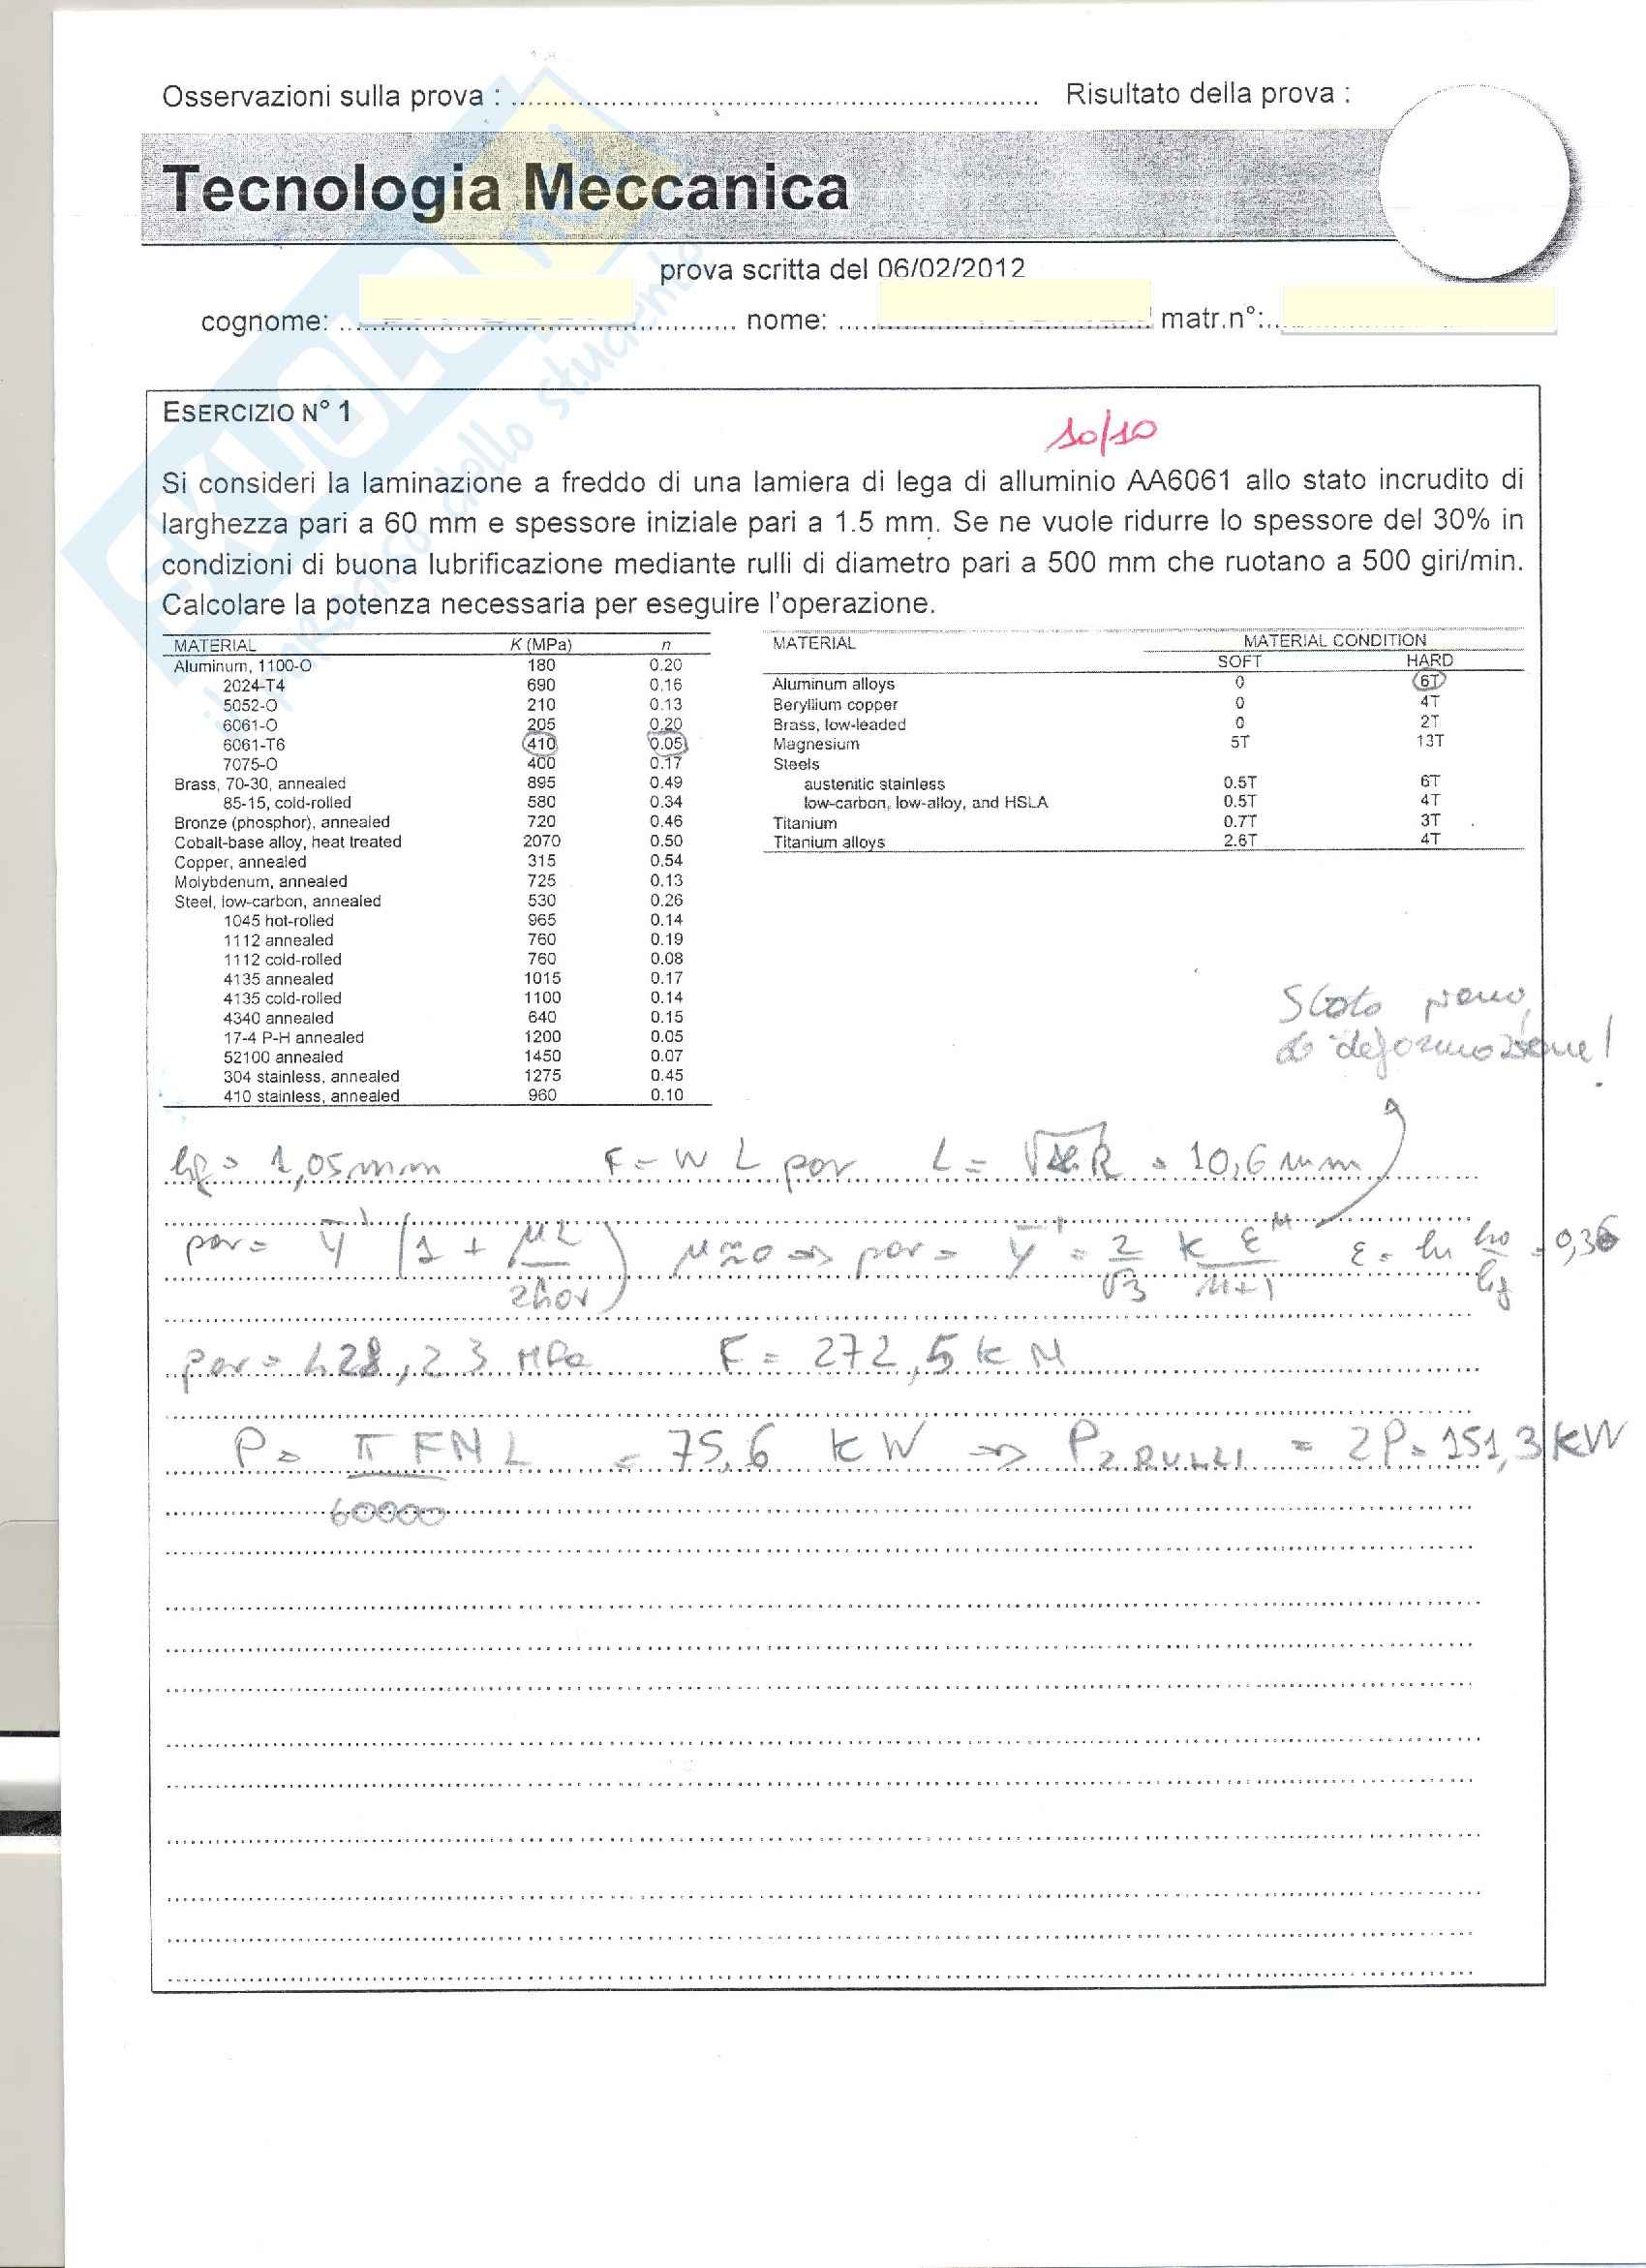 Osservazioni sulla prova : ........ Risultato della prova :
Tecnologia Meccanica
prova scritta del 06/02/2012
cognome: ........ nome: ........ matr.n°:........
ESERCIZIO N° 1
10/10
Si consideri la laminazione a freddo di una lamiera di lega di alluminio AA6061 allo stato incrudito di
larghezza pari a 60 mm e spessore iniziale pari a 1.5 mm. Se ne vuole ridurre lo spessore del 30% in
condizioni di buona lubrificazione mediante rulli di diametro pari a 500 mm che ruotano a 500 giri/min.
Calcolare la potenza necessaria per eseguire l'operazione.
MATERIAL K (MPa) n
Aluminum, 1100-O 180 0.20
2024-T4 690 0.16
5052-O 210 0.13
6061-O 205 0.20
6061-T6 410 0.05
7075-O 400 0.17
Brass, 70-30, annealed 895 0.49
85-15, cold-rolled 580 0.34
Bronze (phosphor), annealed 720 0.46
Cobalt-base alloy, heat treated 2070 0.50
Copper, annealed 315 0.54
Molybdenum, annealed 725 0.13
Steel, low-carbon, annealed 530 0.26
1045 hot-rolled 965 0.14
1112 annealed 760 0.19
1112 cold-rolled 760 0.08
4135 annealed 1015 0.17
4135 cold-rolled 1100 0.14
4340 annealed 640 0.15
17-4 P-H annealed 1200 0.05
52100 annealed 1450 0.07
304 stainless, annealed 1275 0.45
410 stainless, annealed 960 0.10
MATERIAL MATERIAL CONDITION
SOFT HARD
Aluminum alloys 0 6T
Beryllium copper 0 4T
Brass, low-leaded 0 2T
Magnesium 5T 13T
Steels
austenitic stainless 0.5T 6T
low-carbon, low-alloy, and HSLA 0.5T 4T
Titanium 0.7T 3T
Titanium alloys 2.6T 4T
Stato piano
di deformazione!
hf = 1,05 mm F = w L pav L = √ R = 10,6 mm
pav = Ȳ' (1 + μL/2hav) μ≈0 => pav = Ȳ' = 2/√3 K ε^n/n+1 ε = ln h0/hf = 0,36
pav = 428,23 MPa F = 272,5 kN
P = πFNL/60000 = 75,6 kW => P2RULLI = 2P = 151,3 kW
SKUOLA.net
il paradiso dello studente